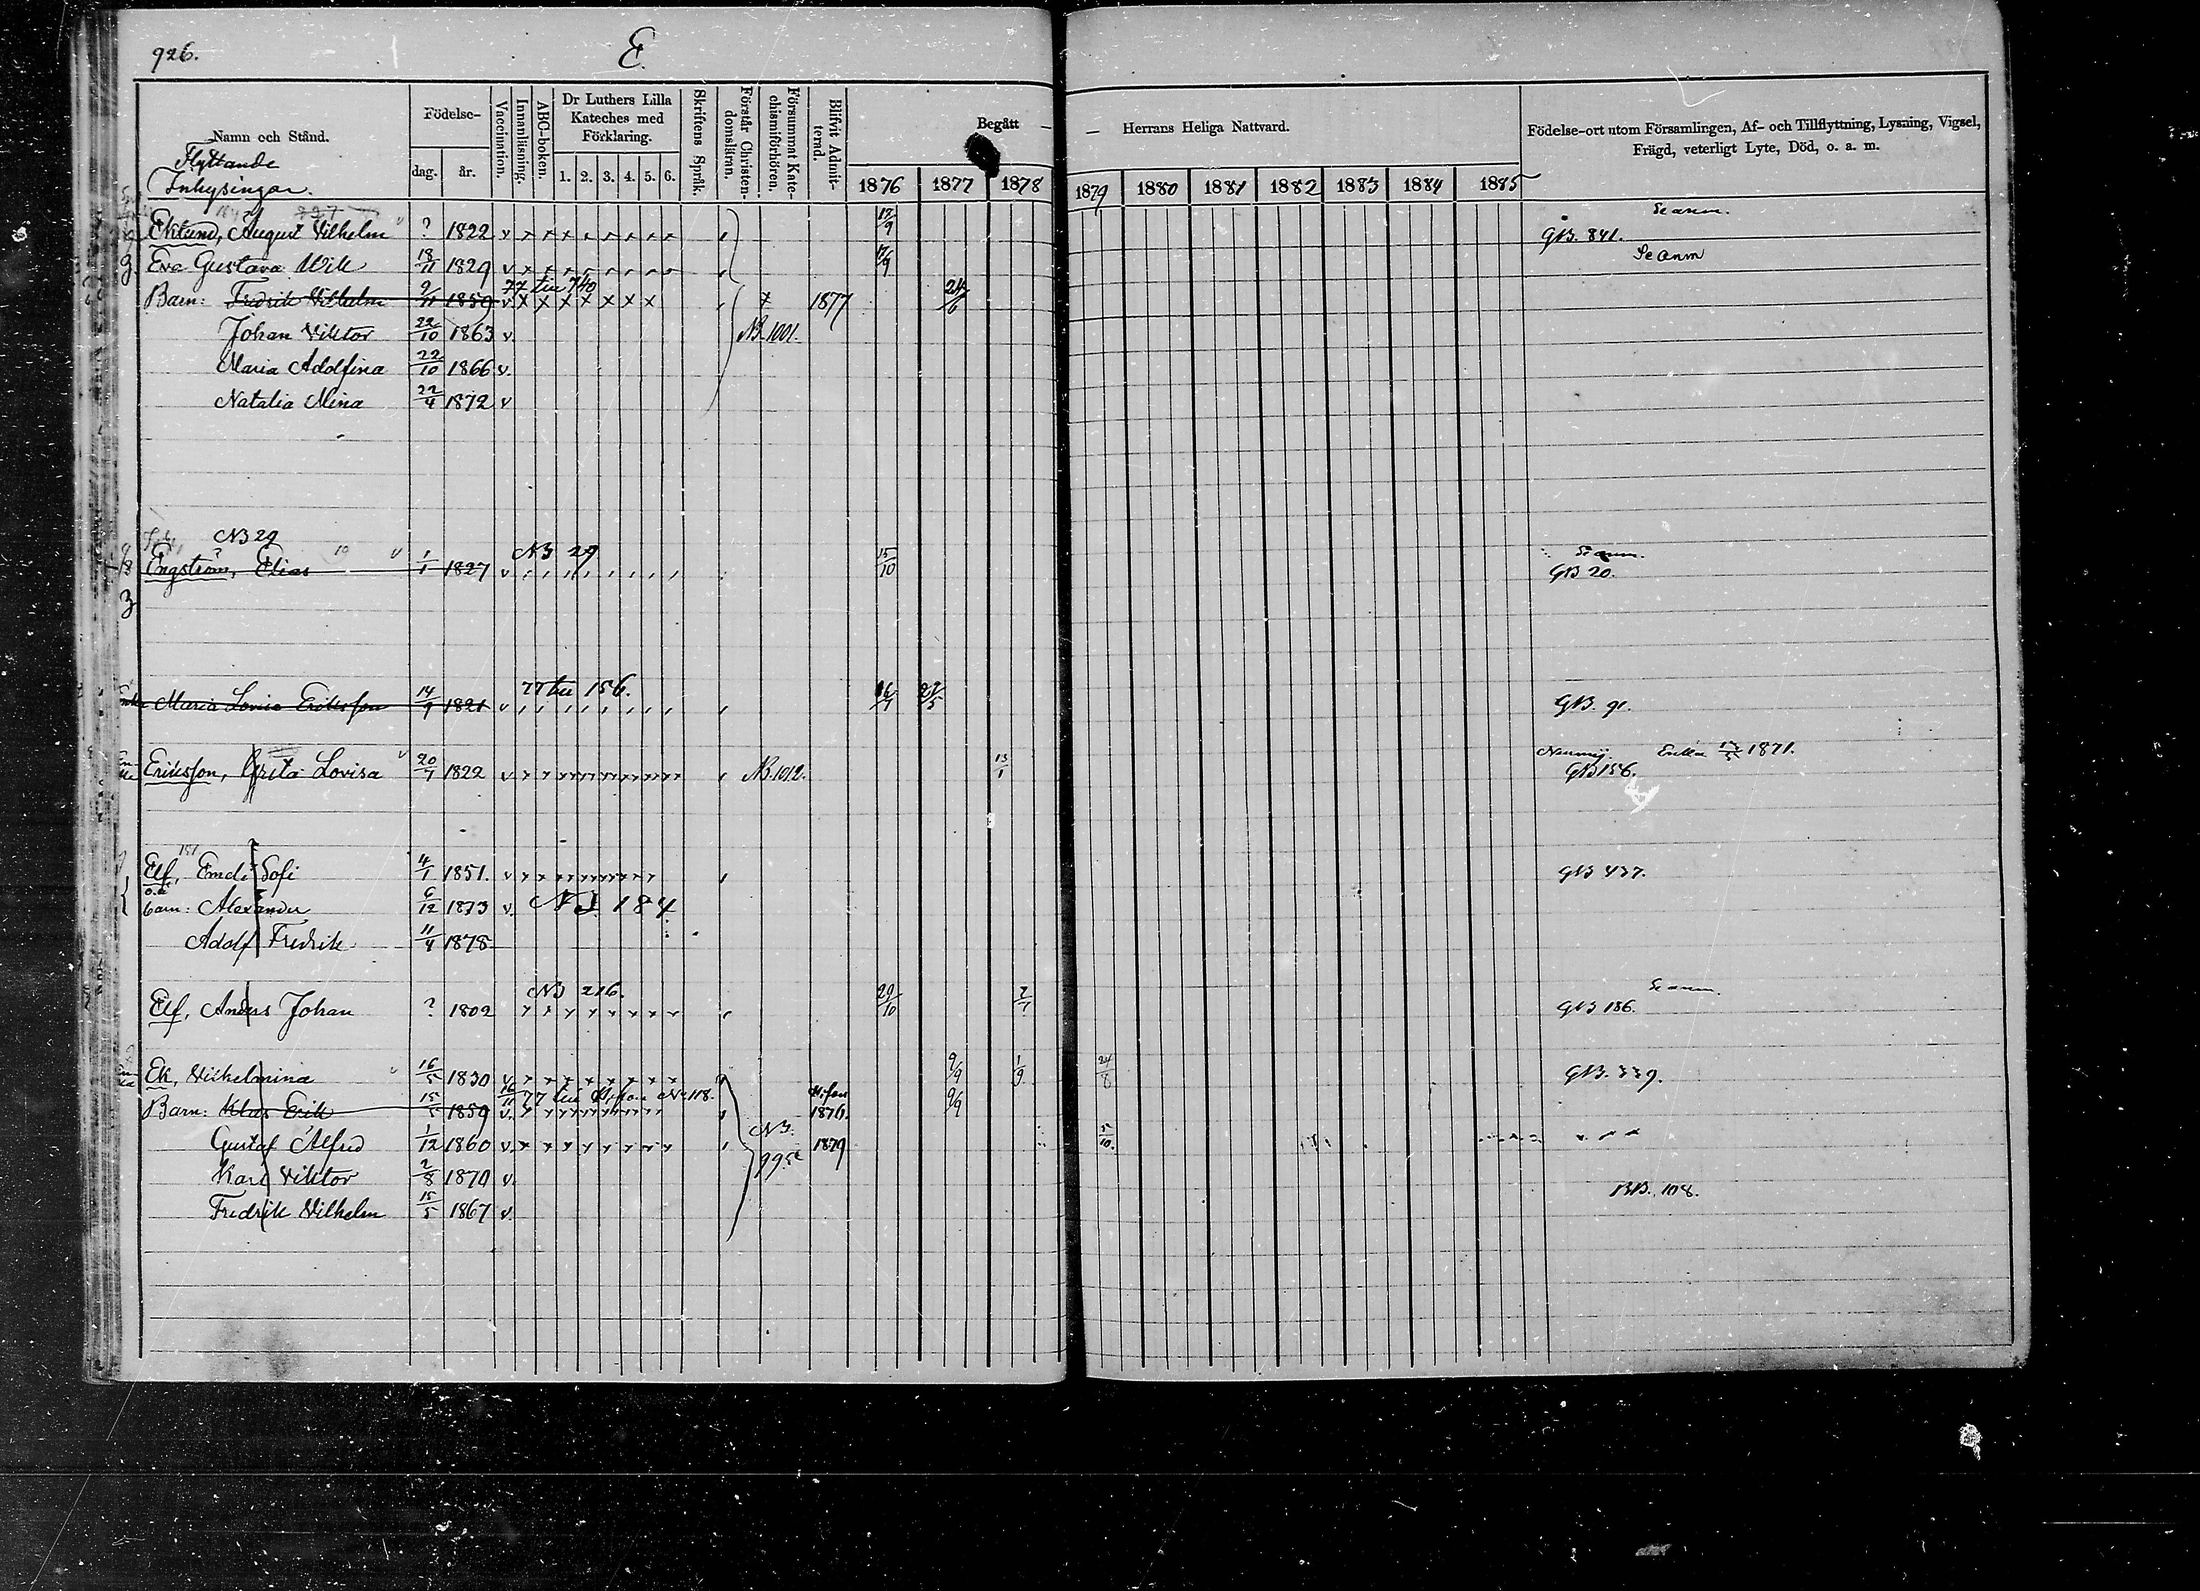 926.
E.
Namn och Stånd.
Födelse-
dag.
år.
Vaccination.
Innanläsning.
ABC-boken.
Dr Luthers Lilla
Kateches med
Förklaring.
1. 2. 3. 4. 5. 6.
Skriftens Språk.
Förstår Christen-
domsläran.
Försummat Kate-
chismiförhören.
Blifvit Admit-
terad.
Begått —
— Herrans Heliga Nattvard.
1876 1877 1878
1879 1880 1881 1882 1883 1884 1885
Födelse-ort utom Församlingen, Af- och Tillflyttning, Lysning, Vigsel,
Frägd, veterligt Lyte, Död, o. a. m.
Flyttande
Inhysingar.
Eklund, August Vilhelm ? 1822 v 17/9 Se anm.
GB. 841.
Eva Gustava Wik 18/11 1829 v 17/9 Se anm
77 till 740
Barn: Fredrik Vilhelm 9/11 1859 v x x x x x x x x 1877 24/6
Johan Viktor 22/10 1863 v NB 1001.
Maria Adolfina 22/10 1866 v.
Natalia Mina 22/4 1872 v
NB 29
NB 29
Engström, Elias 1/1 1827 v 15/10 Se anm.
GB 20.
77 till 156.
Maria Lovisa Eriksson 14/9 1821 v 29/5 GB. 91.
Eriksson, Greta Lovisa 20/7 1822 v NB. 1012. 13/1 Enka 1871.
GB 156.
151
Elf, Emeli Sofi 4/1 1851. v GB 437.
o.ä
barn: Alexander 6/12 1873 v. NB 184
Adolf Fredrik 11/4 1878
NB 216.
Elf, Anders Johan ? 1802 29/10 7/7 Se anm.
GB 186.
Ek, Vilhelmina 16/5 1830 v 9/9 1/9 24/8 GB. 339.
16/11 77 till No 118.
Barn: Klas Erik 15/5 1859 v. 1876. 9/9
Gustaf Alfred 1/12 1860 v NB. 1879 5/10.
Karl Viktor 2/8 1870 v.
BB. 108.
Fredrik Vilhelm 15/5 1867 v.